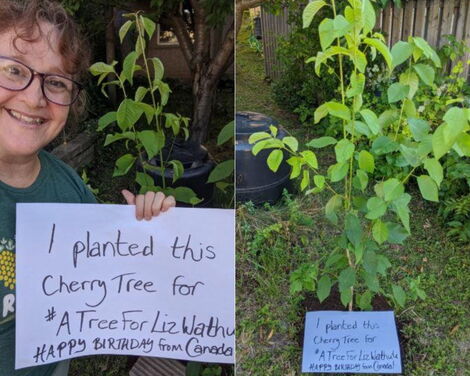 I planted this
Cherry Tree for
#ATreeForLizWathu
HAPPY BIRTHDAY from Canada
I planted this
Cherry Tree for
#ATreeForLizWathuti
HAPPY BIRTHDAY from Canada!